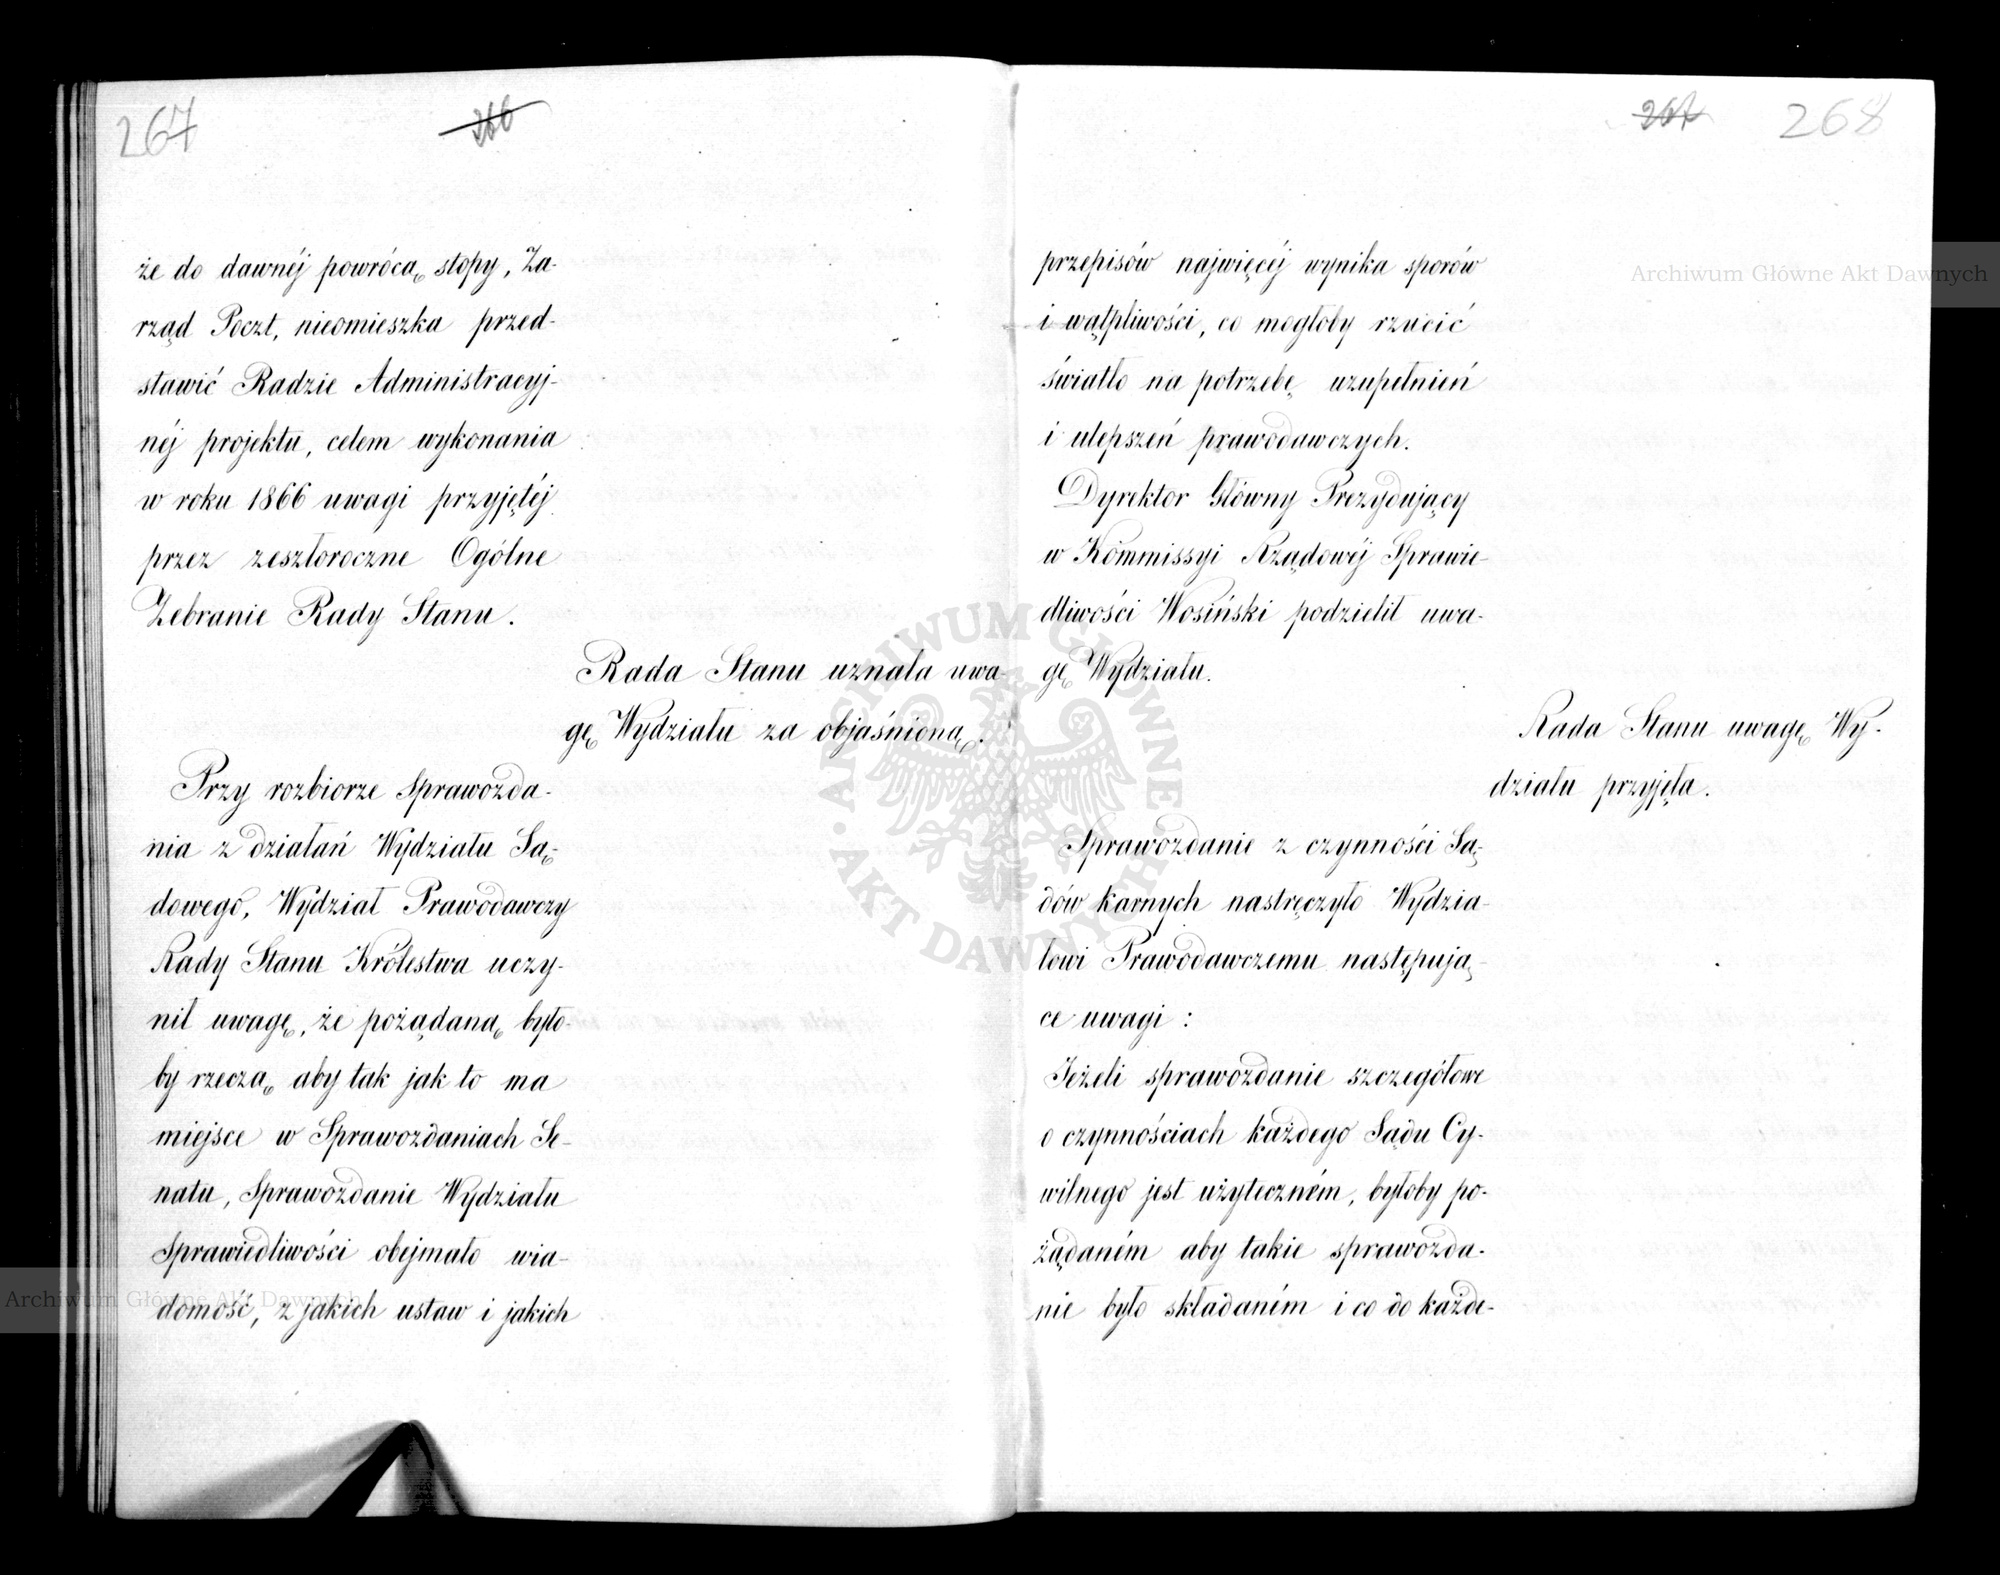 267
266
że do dawnéj powrócą stopy, Za-
rząd Poczt, nieomieszka przed-
stawić Radzie Administracyj-
néj projektu, celem wykonania
w roku 1866 uwagi przyjętéj
przez zeszłoroczne Ogólne
Zebranie Rady Stanu.
Rada Stanu uznała uwa-
gę Wydziału za objaśnioną.
Przy rozbiorze Sprawozda-
nia z działań Wydziału Są-
dowego, Wydział Prawodawczy
Rady Stanu Królestwa uczy-
nił uwagę, że pożądaną było-
by rzeczą aby tak jak to ma
miejsce w Sprawozdaniach Se-
natu, Sprawozdanie Wydziału
Sprawiedliwości obejmało wia-
domość, z jakich ustaw i jakich
267
268
przepisów najwięcéj wynika sporów
i wątpliwości, co mogłoby rzucić
światło na potrzebę uzupełnień
i ulepszeń prawodawczych.
Dyrektor Główny Prezydujący
w Kommissyi Rządowéj Sprawie-
dliwości Wosiński podzielił uwa-
gę Wydziału.
Rada Stanu uwagę Wy-
działu przyjęła.
Sprawozdanie z czynności Są-
dów karnych nastręczyło Wydzia-
łowi Prawodawczemu następują-
ce uwagi:
Jeżeli sprawozdanie szczegółowe
o czynnościach każdego Sądu Cy-
wilnego jest użyteczném, byłoby po-
żądaném aby takie sprawozda-
nie było składaném i co do każde-
Archiwum Główne Akt Dawnych
Archiwum Główne Akt Dawnych
ARCHIWUM GŁÓWNE AKT DAWNYCH